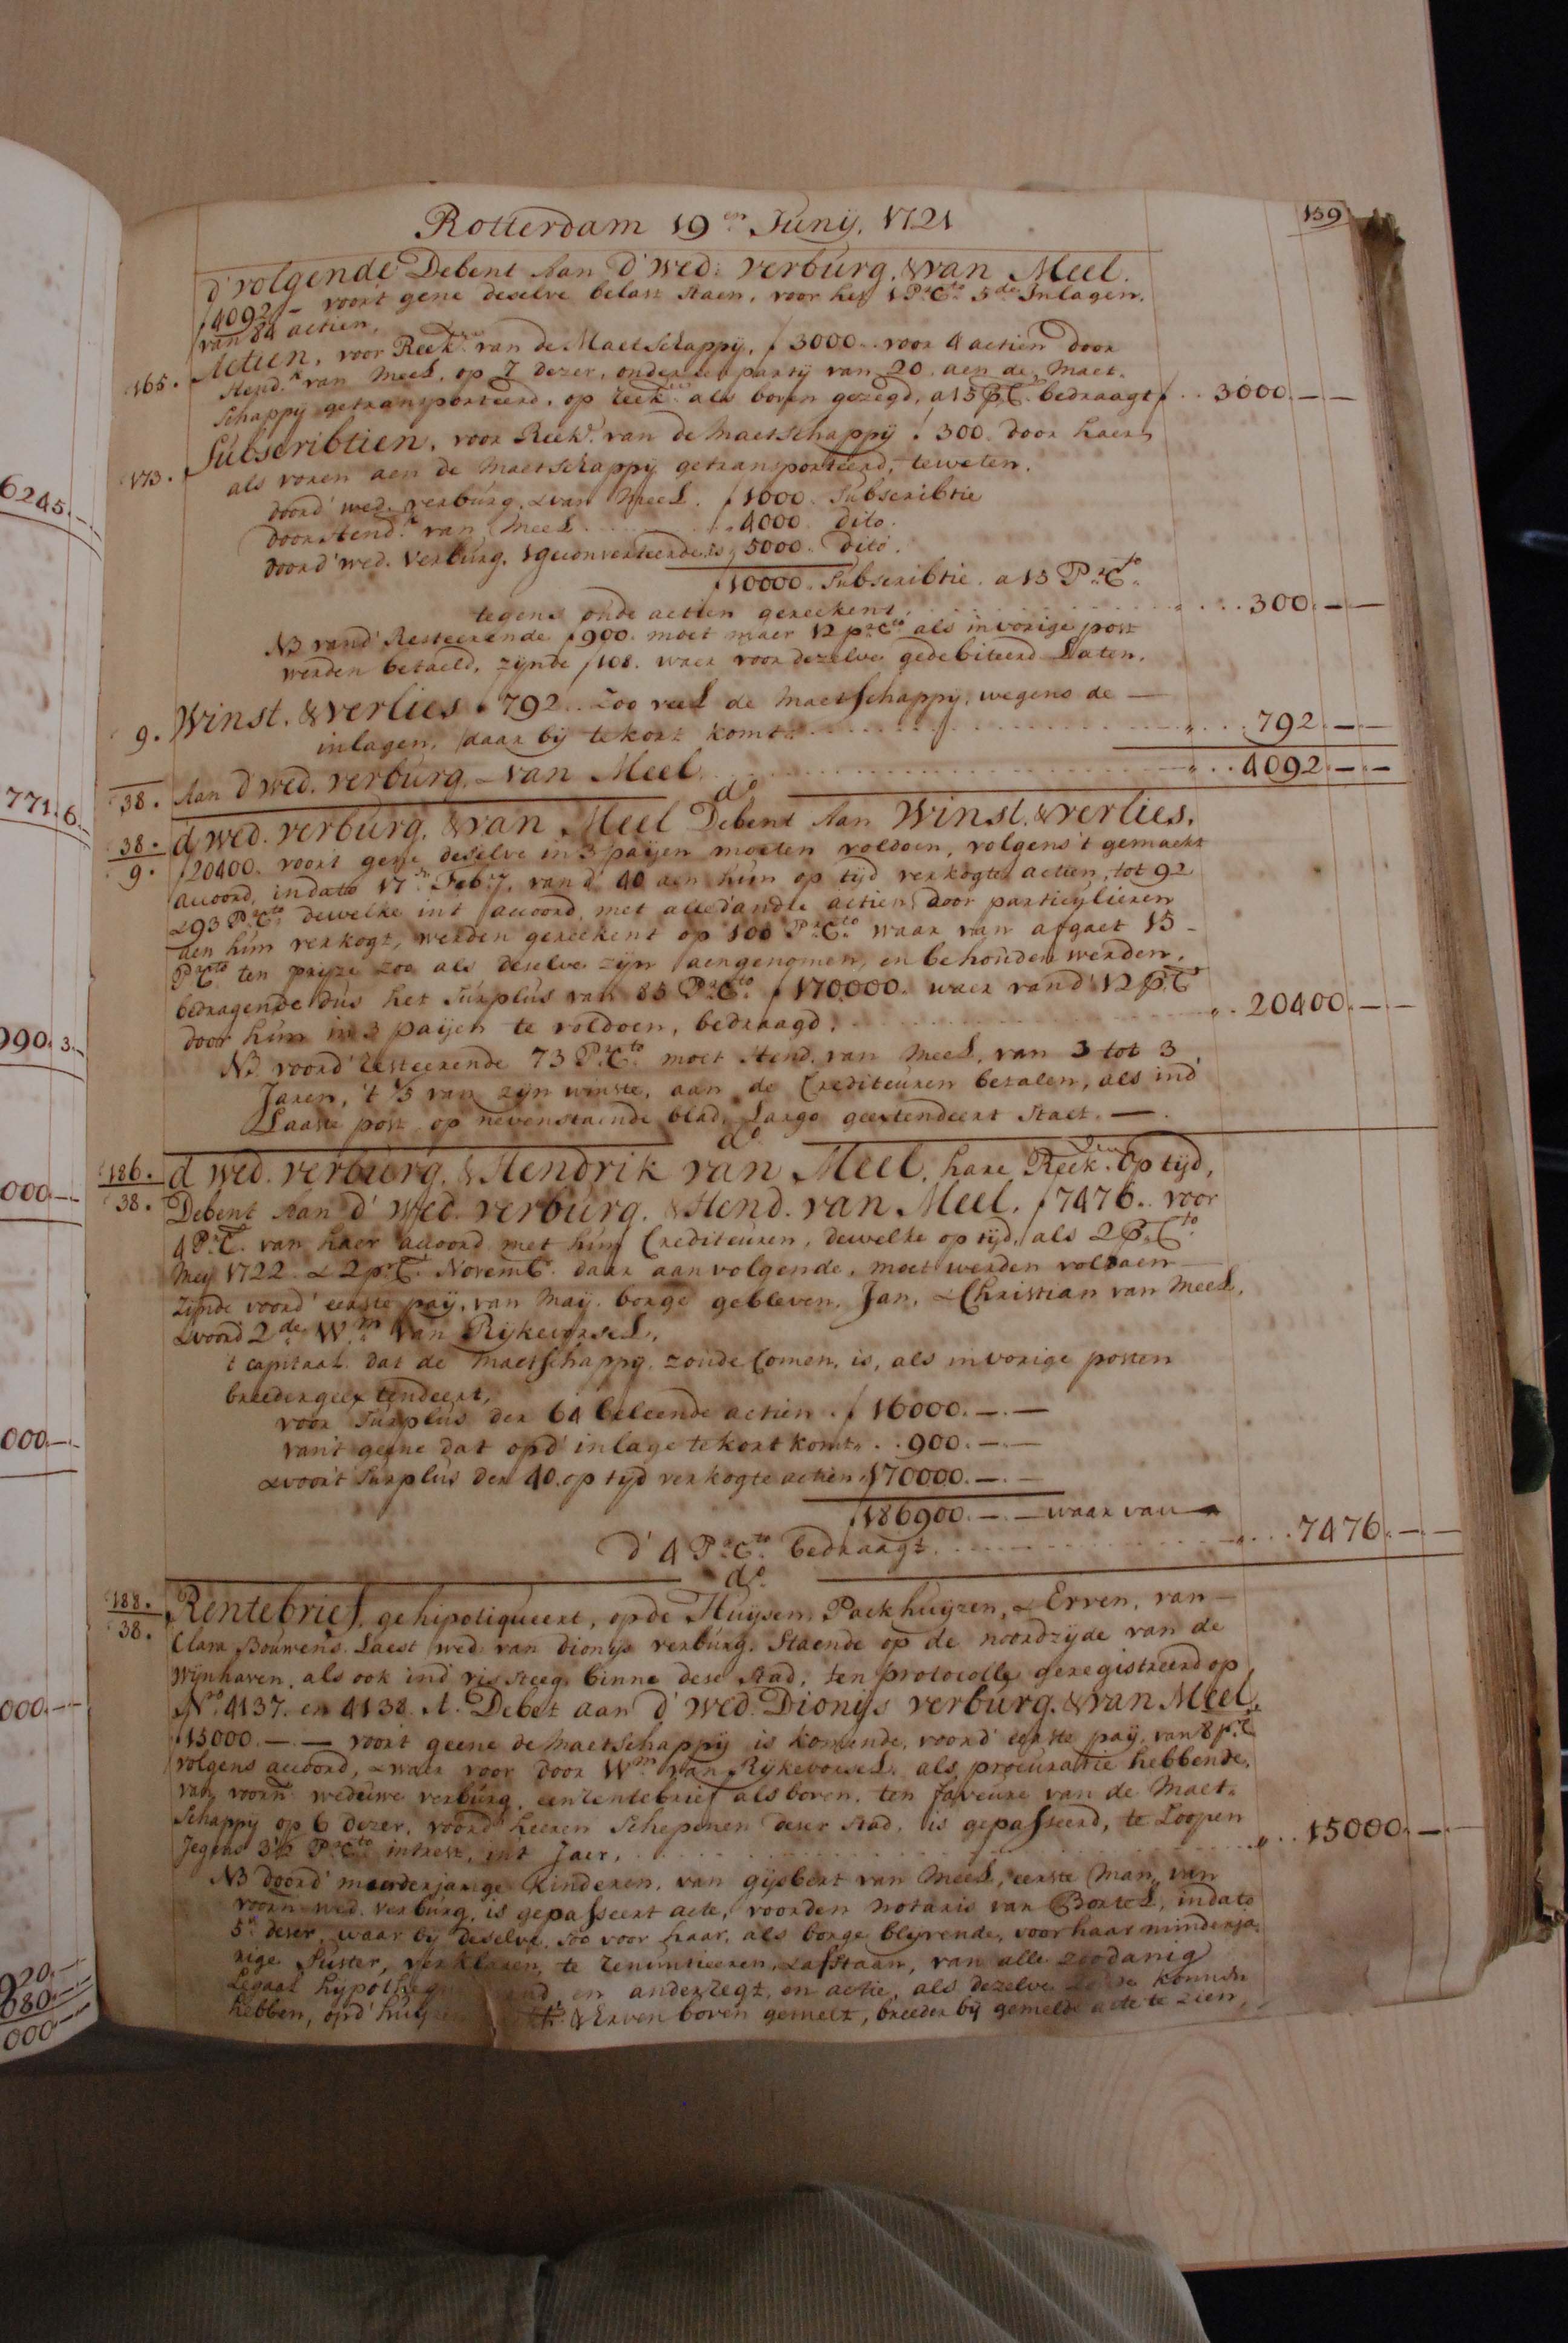 159
Rotterdam 19en Junij. 1721
d' volgende Debent Aan d' wed: verburg. & van Meel.
ƒ4092.- voor't gene deselve belast staen, voor het 1 Pr Cto 5de Inlagen.
van 84 actien.
165. Actien, voor Reek: van de Maetschappij, ƒ3000.. voor 4 actien door
Hend.k van Meel, op 7 dezer, onder een partij van 20. aen de Maet.
schappij getransporteerd, op reek: als boven gezegd, a 15 P.C. bedraagt ƒ.. 3000.—.—
173. Subscribtien, voor Reek: van de Maetschappij. 300. door haer
als voren aen de Maetschappij getransporteerd, teweten.
doord' wed. verburg. & van Meel. ƒ1000. Subscribtie
door Hend.k van Meel ..... 4000. dito.
doord' wed. Verburg. 1 geconverteerde is 5000. Dito.
ƒ10000. Subscribtie. a 15 Pr Cto
tegens oude actien gereekent. .... 300.—.—
NB vand' Resteerende ƒ900. moet maer 12 pr cto als in vorige post
werden betaeld, zijnde ƒ108. waer voor dezelve gedebiteerd Laten.
9. Winst. & verlies. 792.. Zoo veel de Maetschappij, wegens de —
inlagen, daar bij tekort komt. .... 792.—.—
38. Aan d' wed. verburg. & van Meel .... 4092.—.—
do
38. d' wed. verburg. & van Meel Debent Aan Winst. & verlies.
9. ƒ20400. voort gene deselve in 3 paijen moeten voldoen, volgens 't gemaekt
accoord, in dato 17en Feb:ij. van d' 40 aen hun op tijd verkogte actien, tot 92
& 93 Pr Cto dewelke int accoord, met alle d'andre actien door particulieren
aen hun verkogt, werden gereekent op 100 Pr Cto waar van afgaet 15 -
Pr Cto ten prijze zoo als deselve zijn aengenomen, en behouden werden,
bedragende dus het Surplus van 85 Pr Cto ƒ170000. waer van d' 12 p.C
door hun in 3 paijen te voldoen, bedraagd. .... 20400.—.—
NB voord' resteerende 73 Pr Cto moet Hend. van Meel, van 3 tot 3
Jaren, 't 1/3 van zijn winste, aan de Crediteuren betalen, als ind'
Laaste post op nevenstaende blad, Largo geextendeert staet. —.
do
186. d wed. verburg. & Hendrik van Meel, hare Reek: Op tijd,
38. Debent Aan d' Wed. verburg. & Hend. van Meel. ƒ7476.. voor
4 Pr C. van haer accoord met hun Crediteuren, dewelke op tijd, als 2 P. Cto
Meij 1722. & 2 pr C. Novemb. daar aan volgende, moet werden voldaen —
zijnde voord' eerste paij, van Maij. borge gebleven, Jan, & Christian van Meel,
& voord 2de Wm van Rijkevorsel,
't capitaal dat de Maetschappij zoude Comen, is, als in vorige posten
breeder geextendeert,
voor Surplus der 64 beleende actien . ƒ 16000.—.—
van't geene dat opd' inlage tekort komt.. . 900.—.—
& voor't Surplus der 40. op tijd verkogte actien 170000.—.—
ƒ186900.—.— waar van
d' 4 Pr Cto bedraagt ..... 7476.—.—
do
188. Rentebrief, gehipotiqueert, op de Huijsen, Packhuijzen, & Erven, van —
38. Clara Bouwens. Laest wed van dionijs verburg. Staende op de noordzijde van de
Wijnhaven, als ook ind' vissteeg binne dese Stad, ten protocolle geregistreerd op
No 4137. en 4138. A. Debet aan d' Wed. Dionijs verburg. & van Meel.
ƒ15000.—.— voort geene de Maetschappij is komende, voord' eerste paij, van 8 p.C
volgens accoord, & waer voor door Wm van Rijkevorsel. als procuratie hebbende,
van voorn weduwe verburg. een rentebrief als boven, ten faveure van de Maet-
schappij op 6 dezer, voord' heeren Schepenen deser stad, is gepasseerd, te Loopen
Jegens 3 1/2 Pr Cto intrest, int Jaer, .... 15000.—.—
NB doord' meerderjarige kinderen, van gijsbert van Meel, eerste Man van
voorn wed. verburg, is gepasseert acte, voorden notaris van Bortel, indato
5en deser, waar bij deselve, soo voor haar, als borge blijvende, voor haar minderja-
rige Suster, verklaren, te renuntieeren, & afstaan, van alle zoodanig
Legaal hijpotheq en ander regt, en actie, als dezelve konnen
hebben, opd' huijsen & Erven boven gemelt, breeder bij gemelde acte te zien,
6245.—.
771.6.
990.3.
000.—.
000.—.
000.—
920.—.
080.—
000.—